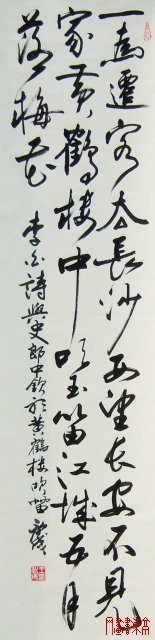 一為遷客去長沙西望長安不見
家黃鶴樓中吹玉笛江城五月
落梅花
李白詩與史郎中欽於黃鶴樓吹笛